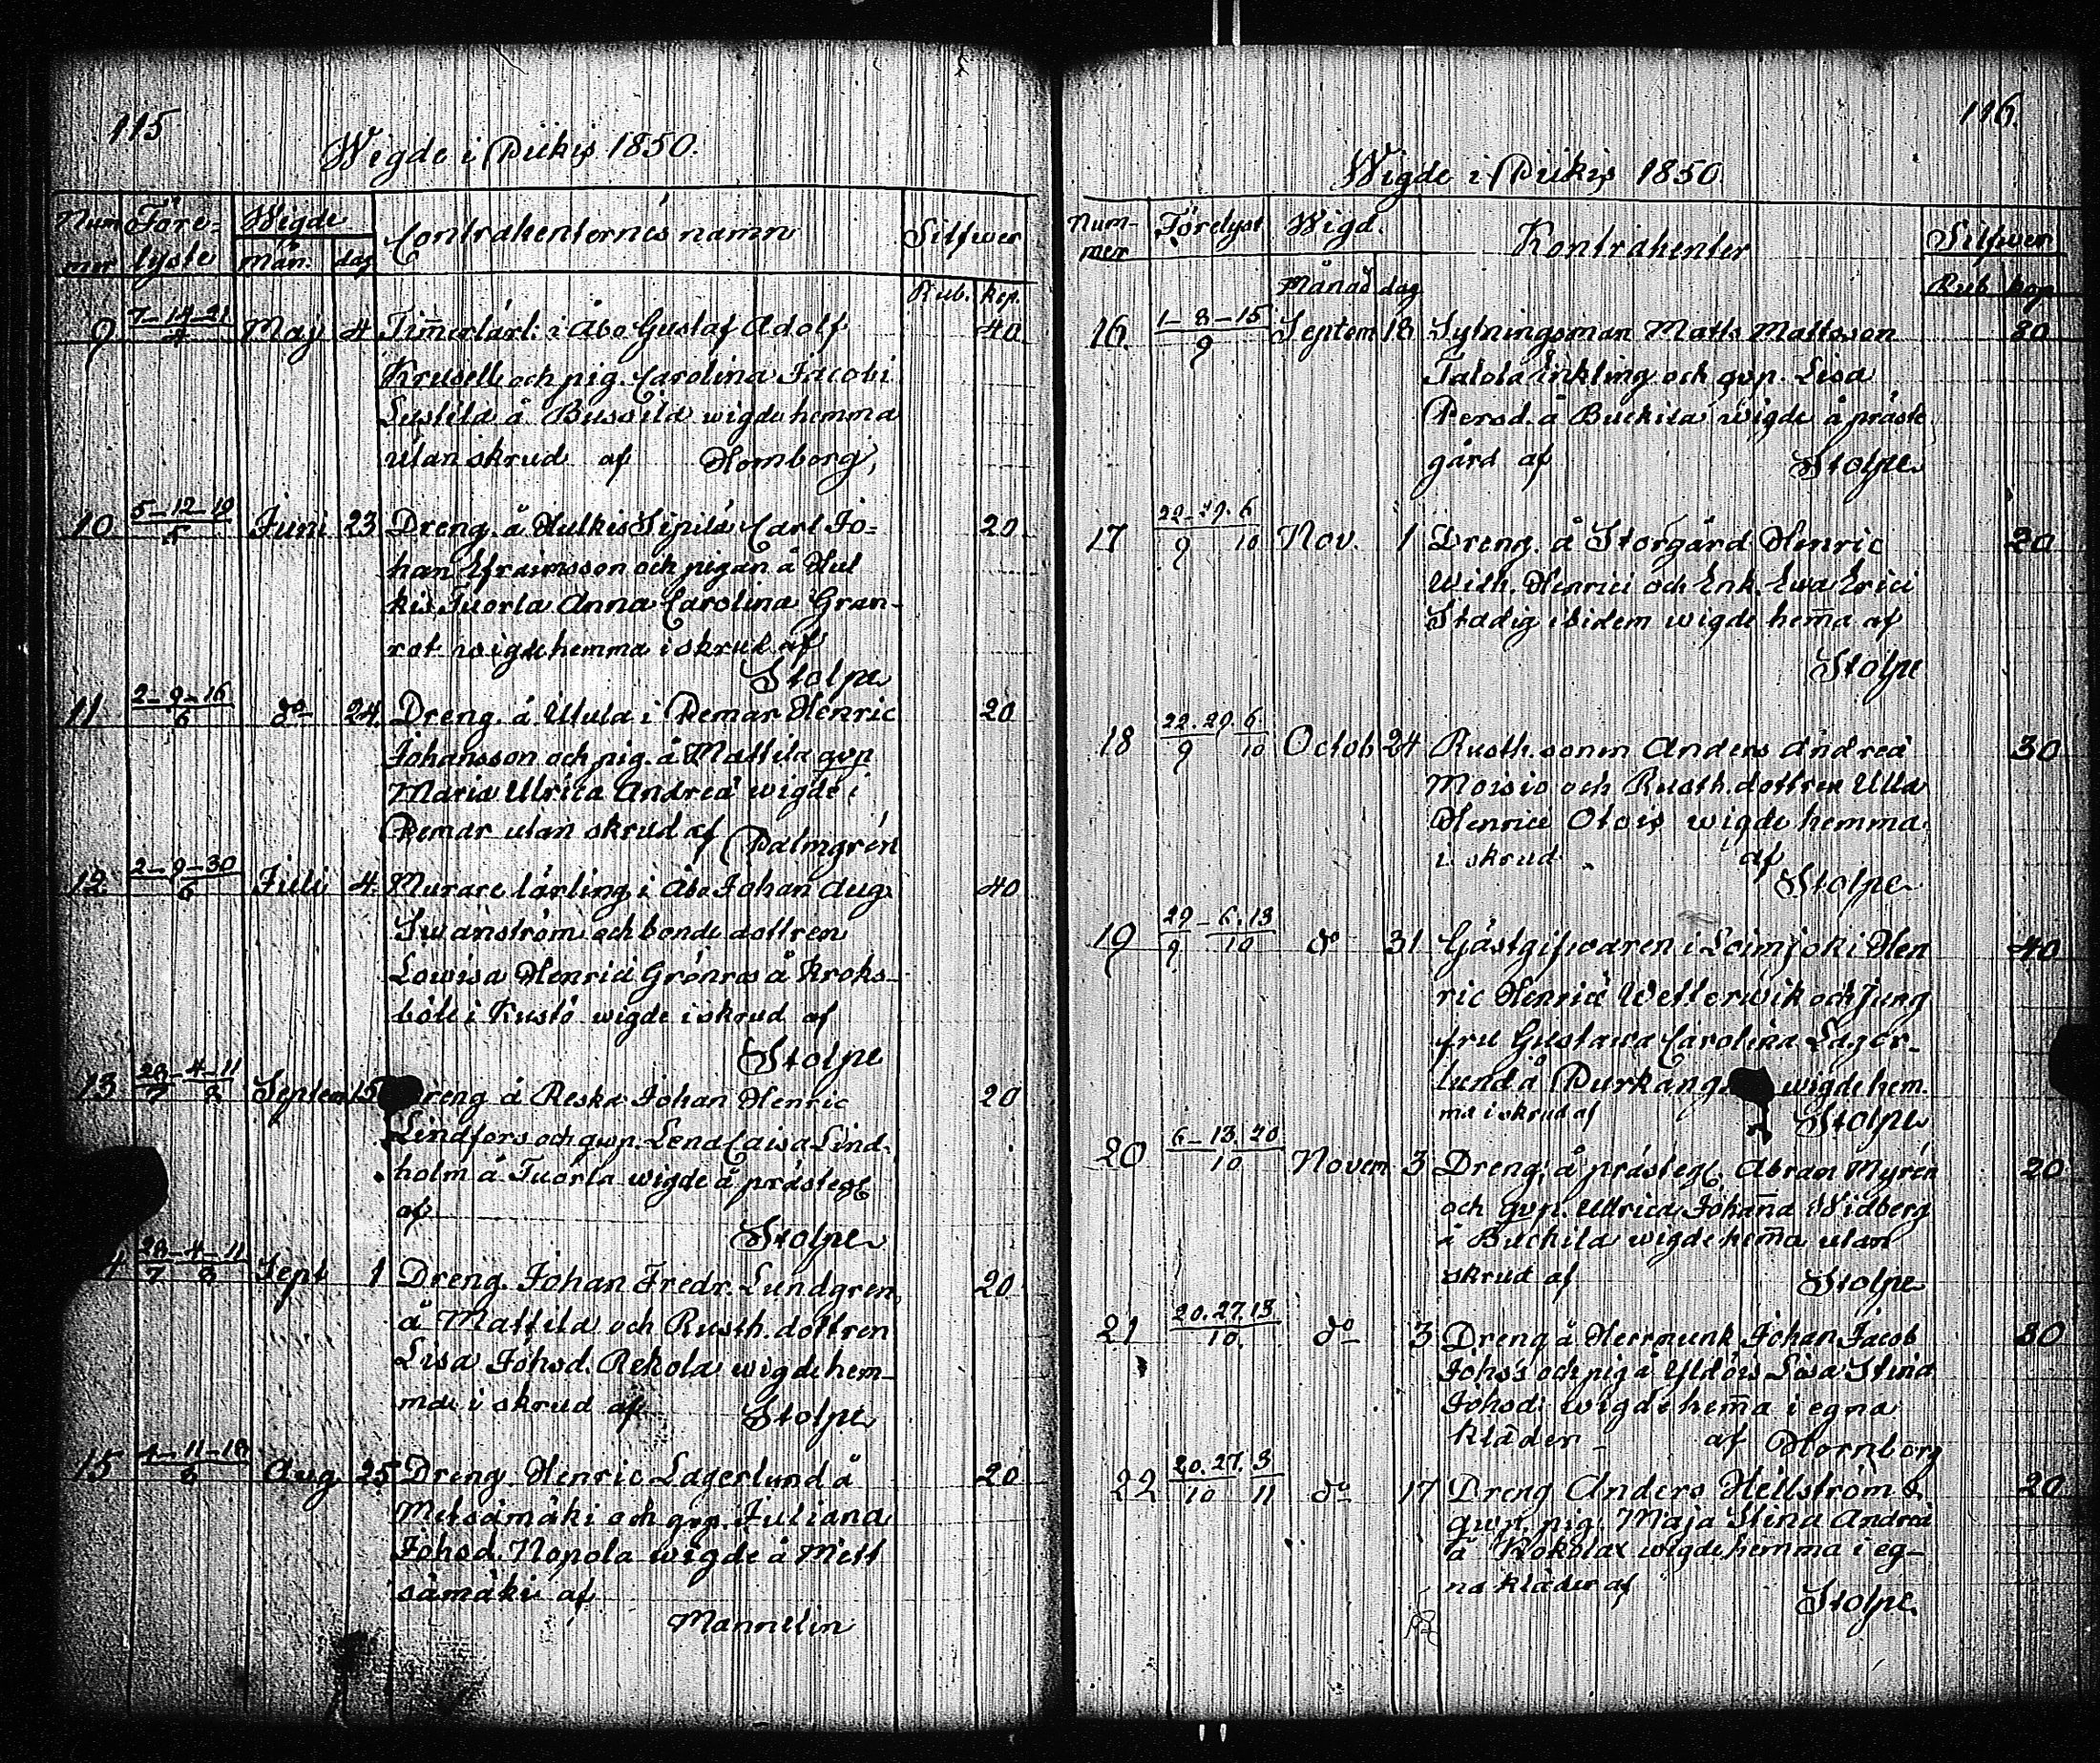 115
Wigde i Pikis 1850.
Num Före- Wigde Contrahenternes namn Silfwer
mer lyste Mån. dag
Rub. kop.
9 7-14-21/4 Maj 4 Timerlärl: i Åbo Gustaf Adolf 40
Krusell och pig. Carolina Jacobi
Lustila å Bussila wigde hemma
utan skrud af Hornborg,
10 5-12-19/5 Juni 23 Dreng. å Hulkis Sipilä Carl Jo- 20
han Efraimsson och pigan å Hul
kis Tuorla Anna Carolina Gran-
rot wigde hemma i skrud af
Stolpe
11 2-9-16/6 do 24 Dreng. å Utula i Pemar Henric 20
Johansson och pig. å Mattila qvp
Maria Ulrica Andreæ wigde i
Pemar utan skrud af Palmgrén
12 2-9-30/6 Juli 4 Murare lärling i Åbo Johan Aug. 40
Swanström och bonde dottren
Lowisa Henrici Grönroos å Kroks-
böle i Kustö wigde i skrud af
Stolpe
13 28-4-11/7 8 Septem 15 Dreng å Reska Johan Henric 20
Lindfors och qwp. Lena Caisa Lind-
holm å Tuorla wigde å prästeg
af
Stolpe
28-4-11/7 8 Sept 1 Dreng. Johan Fredr. Lundgren 20
å Mattila och Rusth. dottren
Lisa Johsd. Rekola wigde hem-
ma i skrud af Stolpe
15 4-11-18/8 Aug 25 Dreng. Henric Lagerlund å 20
Metsämäki och qvp. Juliana
Johsd. Nopola wigde å Mett
sämäki af
Mannelin
116.
Wigde i Pikis 1850
Num- Förelyst Wigd. Kontrahenter Silfwer
mer
Månad dag Rub. kop
16 1-8-15/9 Septem 18 Sytningsman Matts Mattsson 30
Talola Inkling och qvp. Lisa
Persd. å Buckila wigde å präste
gård af Stolpe
17 22-29. 6/9 10 Nov. 1 Dreng. å Storgård Henric 20
Wilh. Henrici och Enk. Ewa Erici
Stadig ibidem wigde hema af
Stolpe
18 22. 29. 6/9 10 Octob 24 Rusth. sonen Anders Andreæ 30
Moisio och Rusth. dottren Ulla
Henrici Otois wigde hemma
i skrud af
Stolpe
19 29-6. 13/9 10 do 31 Gästgifwaren i Loimjoki Hen 40
ric Henrici Wetterwik och Jung
fru Gustawa Carolina Lager-
lund å Purkang wigde hem.
ma i skrud af Stolpe
20 6-13. 20/10 Novem 3 Dreng. å prästeg Abram Myrén 20
och qvp. Ullrica Johana Widberg
å Buchila wigde hema utan
skrud af Stolpe
21 20. 27. 13/10. do 3 Dreng å Herrmunk Johan Jacob 30
Johs's och pig å Yldöis Lisa Stina
Johsd: wigde hema i egna
kläder af Hornborg
22 20. 27. 3/10 11 do 17 Dreng Anders Hellström & 20
qwp. pig. Maja Stina Andreæ
å Kokolax wigde hemma i eg-
na kläder af Stolpe.